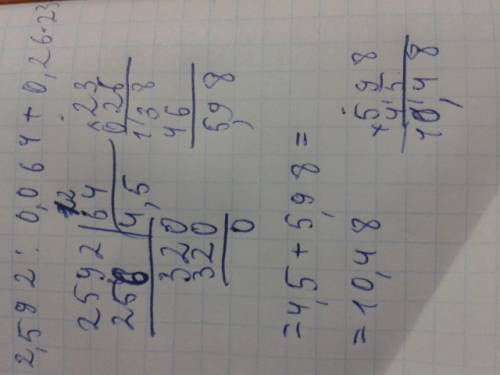 2,592 : 0,064 + 0,26·23
2592 | 64
256 | 4,5
320
320
0
×23
0,26
138
46
5,98
=4,5 + 5,98 =
=10,48
+5,98
4,5
10,48